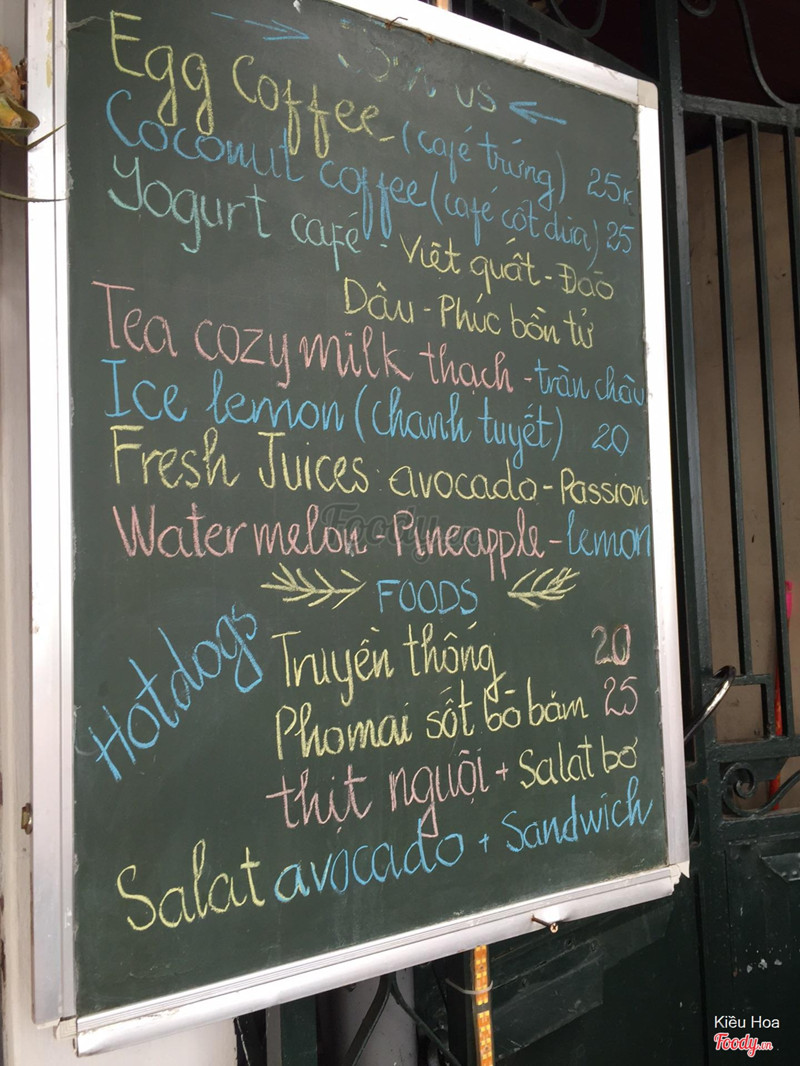 us
Egg Coffee (café trứng) 25K
Coconut coffee (café cốt dừa) 25
Yogurt café - Việt quất - Đào
Dâu - Phúc bồn tử
Tea cozy milk thạch - trân châu
Ice lemon (chanh tuyết) 20
Fresh Juices: avocado - Passion
Watermelon - Pineapple - lemon
FOODS
Hotdogs
Truyền thống 20
Phomai sốt bò bằm 25
thịt nguội + Salat bơ
Salat avocado + Sandwich
Foody.vn
Kiều Hoa
Foody.vn